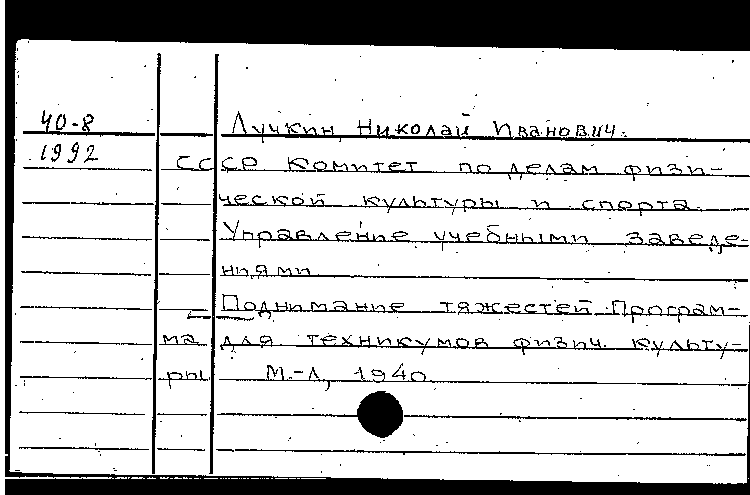 40-8
1992
Лучкин, Николай Иванович.
СССР Комитет по делам физи-
ческой культуры и спорта.
Управление учебными заведе-
ниями
Поднимание тяжестей. Програм-
ма для техникумов физич. культу-
ры М.-Л, 1940.